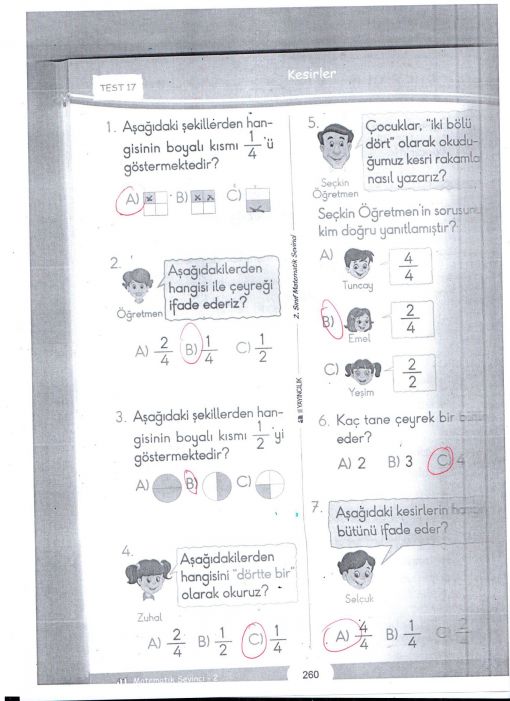 Kesirler
TEST 17
1. Aşağıdaki şekillerden han-
gisinin boyalı kısmı 1/4 'ü
göstermektedir?
A) B) C)
2.
Aşağıdakilerden
hangisi ile çeyreği
ifade ederiz?
Öğretmen
A) 2/4 B) 1/4 C) 1/2
3. Aşağıdaki şekillerden han-
gisinin boyalı kısmı 1/2 'yi
göstermektedir?
A) B) C)
4.
Aşağıdakilerden
hangisini "dörtte bir"
olarak okuruz?
Zuhal
A) 2/4 B) 1/2 C) 1/4
2. Sınıf Matematik Sevinci
YAYINCILIK
5.
Çocuklar, "iki bölü
dört" olarak okudu-
ğumuz kesri rakamla
nasıl yazarız?
Seçkin
Öğretmen
Seçkin Öğretmen'in sorusunu
kim doğru yanıtlamıştır?
A) 4/4
Tuncay
B) 2/4
Emel
C) 2/2
Yeşim
6. Kaç tane çeyrek bir
eder?
A) 2 B) 3 C) 4
7.
Aşağıdaki kesirlerin
bütünü ifade eder?
Selçuk
A) 4/4 B) 1/4 C) 2/4
Matematik Sevinci - 2
260